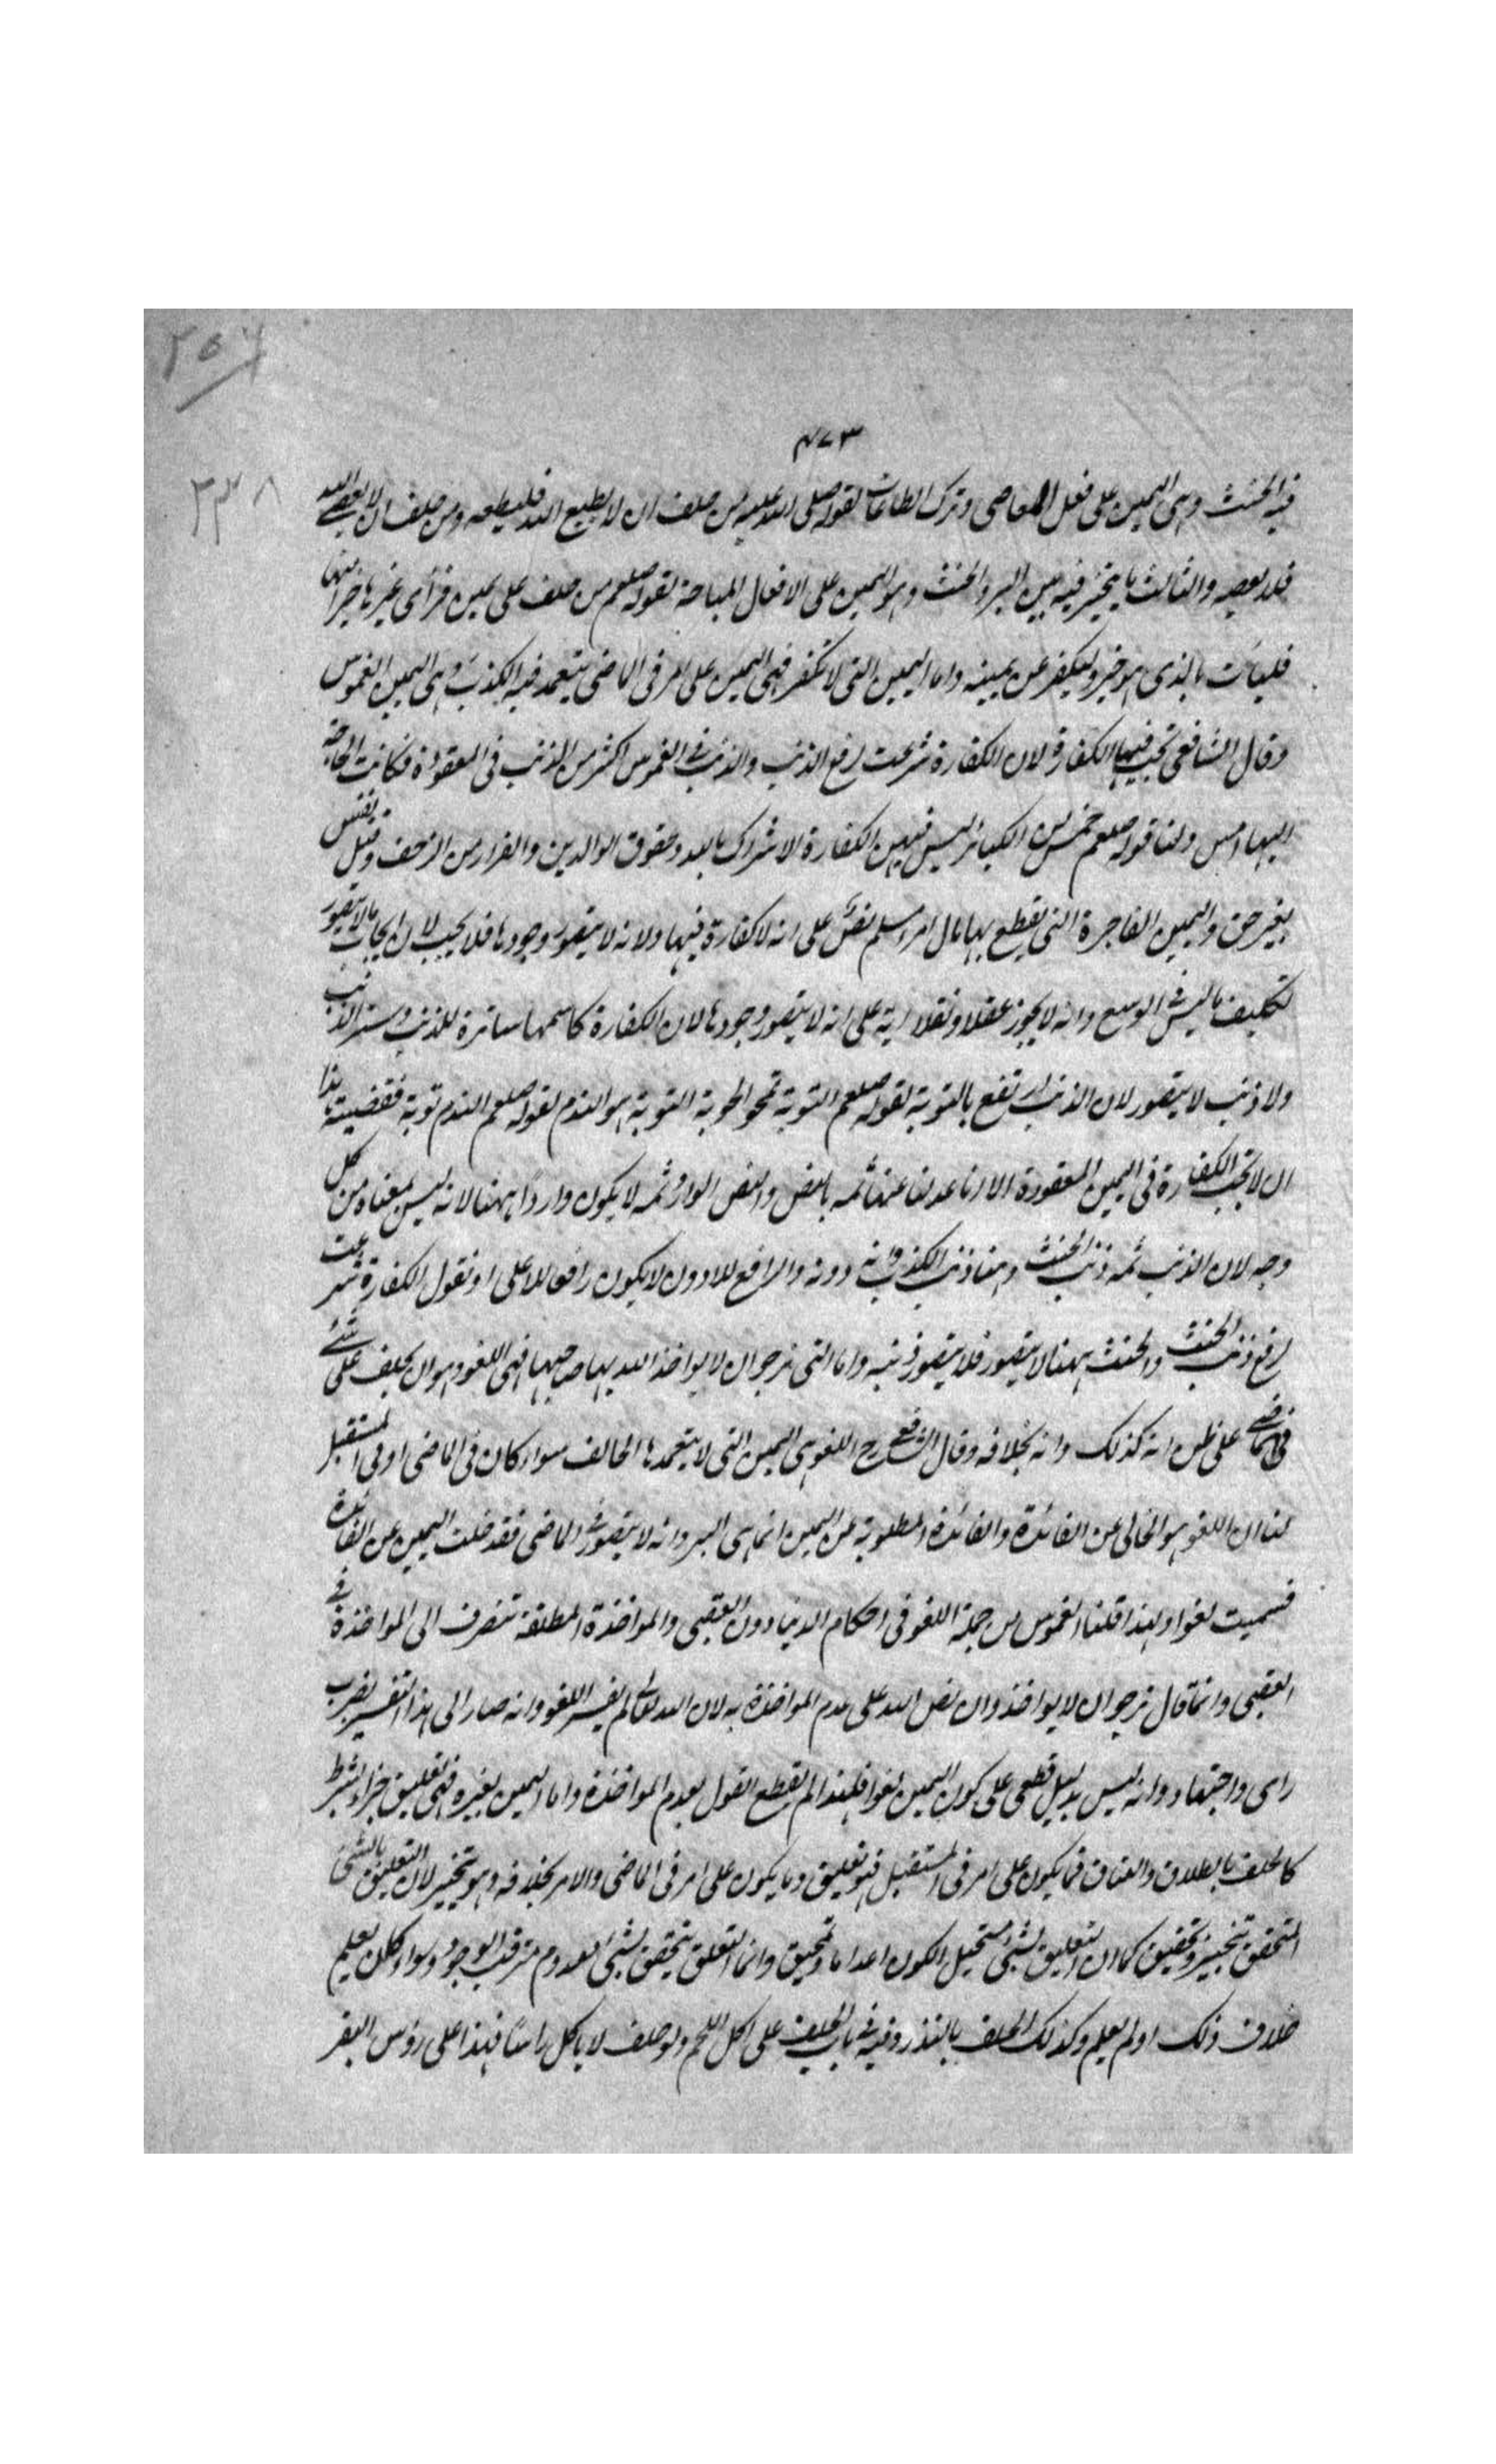 ٢٥٦
٤٧٣
٢٣٨
فيه الحنث وهى اليمين على فعل المعاصى وترك الطاعات لقوله صلى الله عليه من حلف ان لا يطيع الله فليطعه ومن حلف ان لا يعصى الله
فلا يعصه والثالث ما يتخير فيه بين البر والحنث وهو اليمين على الافعال المباحة لقوله صلعم من حلف على يمين فرأى غيرها خيرا منها
فليات بالذى هو خير وليكفر عن يمينه واما اليمين التى لا تكفر فهى اليمين على امر فى الماضى يتعمد فيه الكذب وهى اليمين الغموس
وقال الشافعى تجب فيها الكفارة لان الكفارة شرعت لرفع الذنب والذنب فى الغموس اكثر من الذنب فى المعقودة فكانت الحاجة
اليها امس ولنا قوله صلعم خمس من الكبائر ليس فيهن الكفارة الاشراك بالله وعقوق الوالدين والفرار من الزحف وقتل نفس
بغير حق واليمين الفاجرة التى يقطع بها مال امرا مسلم نص على انه لا كفارة فيها ولانه لا يتصور وجودها فلا يجب لان ايجاب ما لا يتصور
تكليف ما ليس فى الوسع وانه لا يجوز عقلا ونقلا اية على انه لا يتصور وجودها لان الكفارة كاسمها ساترة للذنب وستر الذنب
ولا ذنب لا يتصور لان الذنب ارتفع بالتوبة لقوله صلعم التوبة تمحو الحوبة التوبة هو الندم لقوله صلعم الندم توبة فقضية هذا
ان لا تجب الكفارة فى اليمين المعقودة الا انا عدلنا عنها ثمه بالنص والنص الوارد ثمه لا يكون واردا ههنا لانه ليس بمعناه من كل
وجه لان الذنب ثمه ذنب الحنث وهنا ذنب الكذب وانه دونه والرافع للادون لا يكون رافعا للاعلى او نقول الكفارة شرعت
لرفع ذنب الحنث والحنث ههنا لا يتصور فلا يتصور ذنبه واما التى نرجو ان لا يواخذ الله بها صاحبها فهى اللغو وهو ان يحلف على شئ
فى الماضى على ظن انه كذلك وانه بخلافه وقال الشافعى رح اللغو هى اليمين التى لا يتعمدها الحالف سواء كان فى الماضى او فى المستقبل
لنا ان اللغو هو الخالى عن الفائدة والفائدة المطلوبة من اليمين انما هى البر وانه لا يتصور فى الماضى فقد خلت اليمين عن الفائدة
فسميت لغوا ولهذا قلنا الغموس من جملة اللغو فى احكام الدنيا دون العقبى والمواخذة المطلقة تنصرف الى المواخذة فى
العقبى وانما قال نرجو ان لا يواخذ وان نص الله على عدم المواخذة به لان الله تعالى لم يفسر اللغو وانه صار الى هذا التفسير بضرب
راى واجتهاد وانه ليس بدليل قطعى على كون اليمين لغوا فلهذا لم يقطع القول بعدم المواخذة واما اليمين بغيره فهى تعليق جزاء بشرط
كالحلف بالطلاق والعتاق فما يكون على امر فى المستقبل فهو تعليق وما يكون على امر فى الماضى والامر بخلافه وهو تنجيز لان التعليق بالشئ
المتحقق تنجيز وتحقيق كما ان التعليق بشئ مستحيل الكون اعداما وتحقيق وانما التعليق يتحقق بشئ معدوم مترقب الوجود وسواء كان يعلم
خلاف ذلك او لم يعلم وكذلك الحلف بالنذر وفيه فى باب الحلف على اكل اللحم ولو حلف لا ياكل راسا فهذا على رؤس البقر